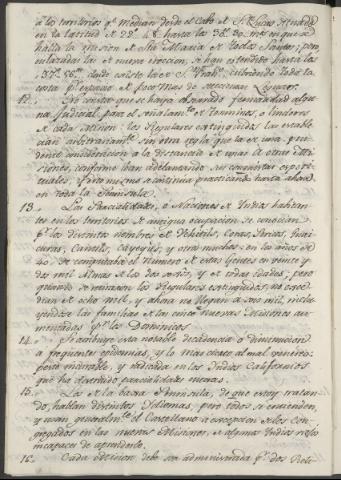 á los territorios qe. median desde el Cabo de S. Lucas situado
en la latitud de 22°. 48. hasta los 30°. 30. ms. en que se
halla la Mision de Sta. Maria de Todos Santos; pero
entabladas las de nueva ereccion, se han extendido hasta los
costa pr. espacio de poco mas de
12. No consta que se haya observado formalidad algu-
na judicial, para el señalamto. de terminos, ó linderos
de cada Mision: los Regulares extinguidos las estable-
cian arbitrariamte. sin otra regla que la de una pru-
dente consideracion á la distancia de unas á otras Mi-
siones, conforme iban
tuales. y esto mismo se continua practicando hasta ahora
en toda la Peninsula.
13. Las Parcialidades, ó Naciones de Yndios habitan-
tes en los territorios de antigua ocupacion se conocian
pr. los distintos nombres de Coras, Pericus, Guai-
curas, y otras muchas: en los años de
40. se computaba el numero de estas Gentes en veinte y
dos mil Almas de los dos sexôs, y de todas edades; pero
quando se retiraron los Regulares extinguidos, no exce-
dian de ocho mil, y ahora no llegan á inclu-
yendose las familias de las cinco nuevas Misiones au-
mentadas pr. los Dominicos.
14. Atribuyese esta notable decadencia ó diminucion
á frequentes epidemias, y lo mas cierto al mal venereo:
pero incurable, y radicada en los Yndios Californios
que ha destruido parcialidades enteras.
15. Los de la baxa Peninsula, de que estoy tratan-
do, hablan distintos Ydiomas, pero todos se entienden,
y usan generalmte. el Castellano á excepcion de los con-
gregados en las nuevas Misiones, de algunos Yndios
incapaces de aprenderlo.
16. Cada Mision debe ser administrada pr. dos Reli-